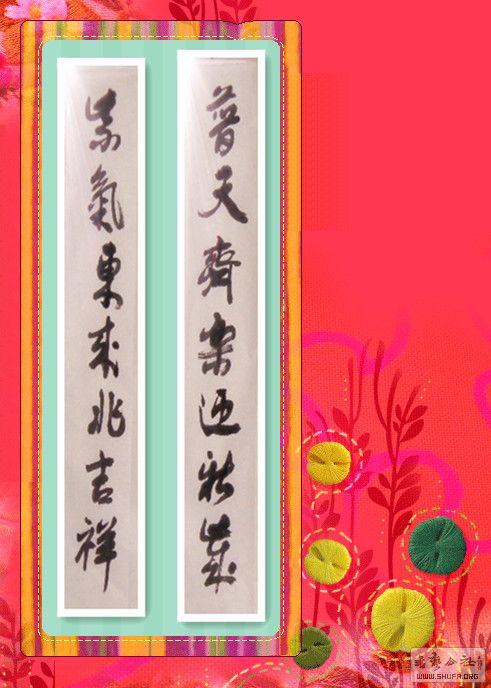 普天齊樂迎新歲
紫氣東來兆吉祥
WWW.SHUFA.ORG